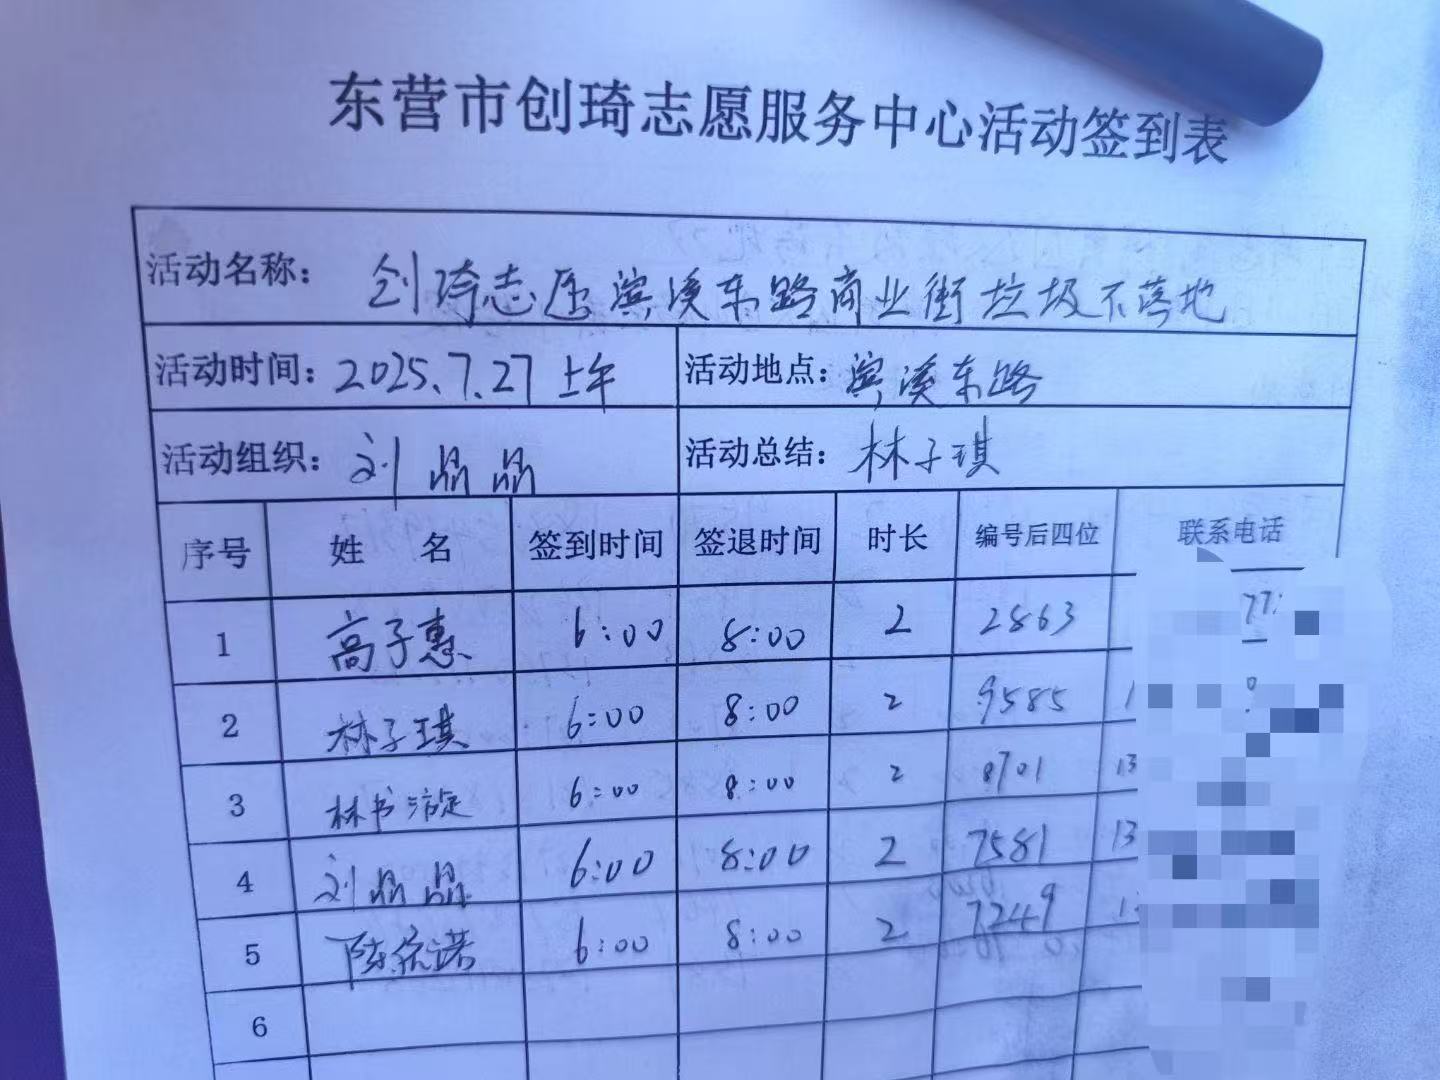 东营市创琦志愿服务中心活动签到表
活动名称: 创琦志愿滨溪东路商业街垃圾不落地
活动时间: 2025.7.27上午 活动地点: 滨溪东路
活动组织: 刘晶晶 活动总结: 林子琪
序号 姓 名 签到时间 签退时间 时长 编号后四位 联系电话
1 高子惠 6:00 8:00 2 2863
2 林子琪 6:00 8:00 2 9585 1
3 林书漩 6:00 8:00 2 8701 13
4 刘晶晶 6:00 8:00 2 7581 13
5 陈依诺 6:00 8:00 2 7249 13
6